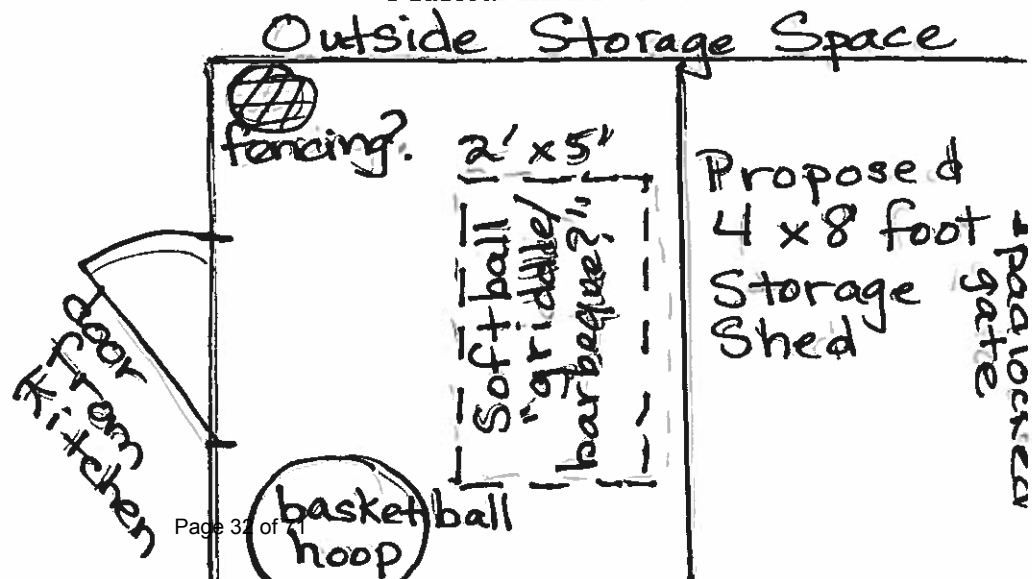 Outside Storage Space
fencing?
2' x 5'
Softball
"griddle/
barbeque?"
Proposed
4 x 8 foot
Storage
Shed
padlocked
gate
door
from
Kitchen
basketball
hoop
Page 32 of 71